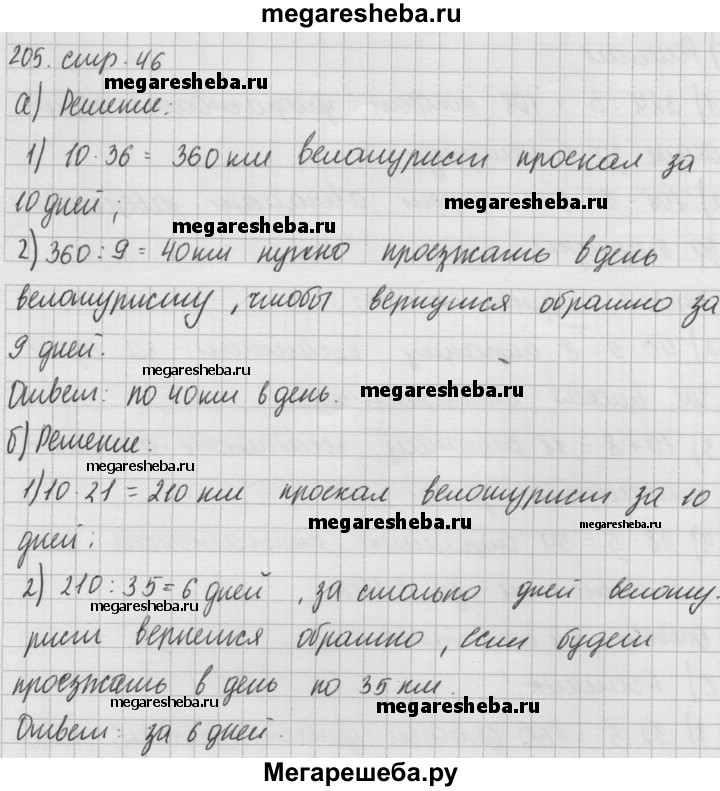 megaresheba.ru
205. стр. 46
megaresheba.ru
а) Решение:
1) 10 · 36 = 360 км велотурист проехал за
megaresheba.ru
10 дней;
megaresheba.ru
2) 360 : 9 = 40 км нужно проезжать в день
велотуристу, чтобы вернутся обратно за
9 дней.
megaresheba.ru
Ответ: по 40 км в день.
megaresheba.ru
б) Решение:
megaresheba.ru
1) 10 · 21 = 210 км проехал велотурист за 10
megaresheba.ru
megaresheba.ru
дней;
2) 210 : 35 = 6 дней, за столько дней велоту-
megaresheba.ru
рист вернется обратно, если будет
проезжать в день по 35 км.
megaresheba.ru
megaresheba.ru
Ответ: за 6 дней.
Мегарешеба.ру